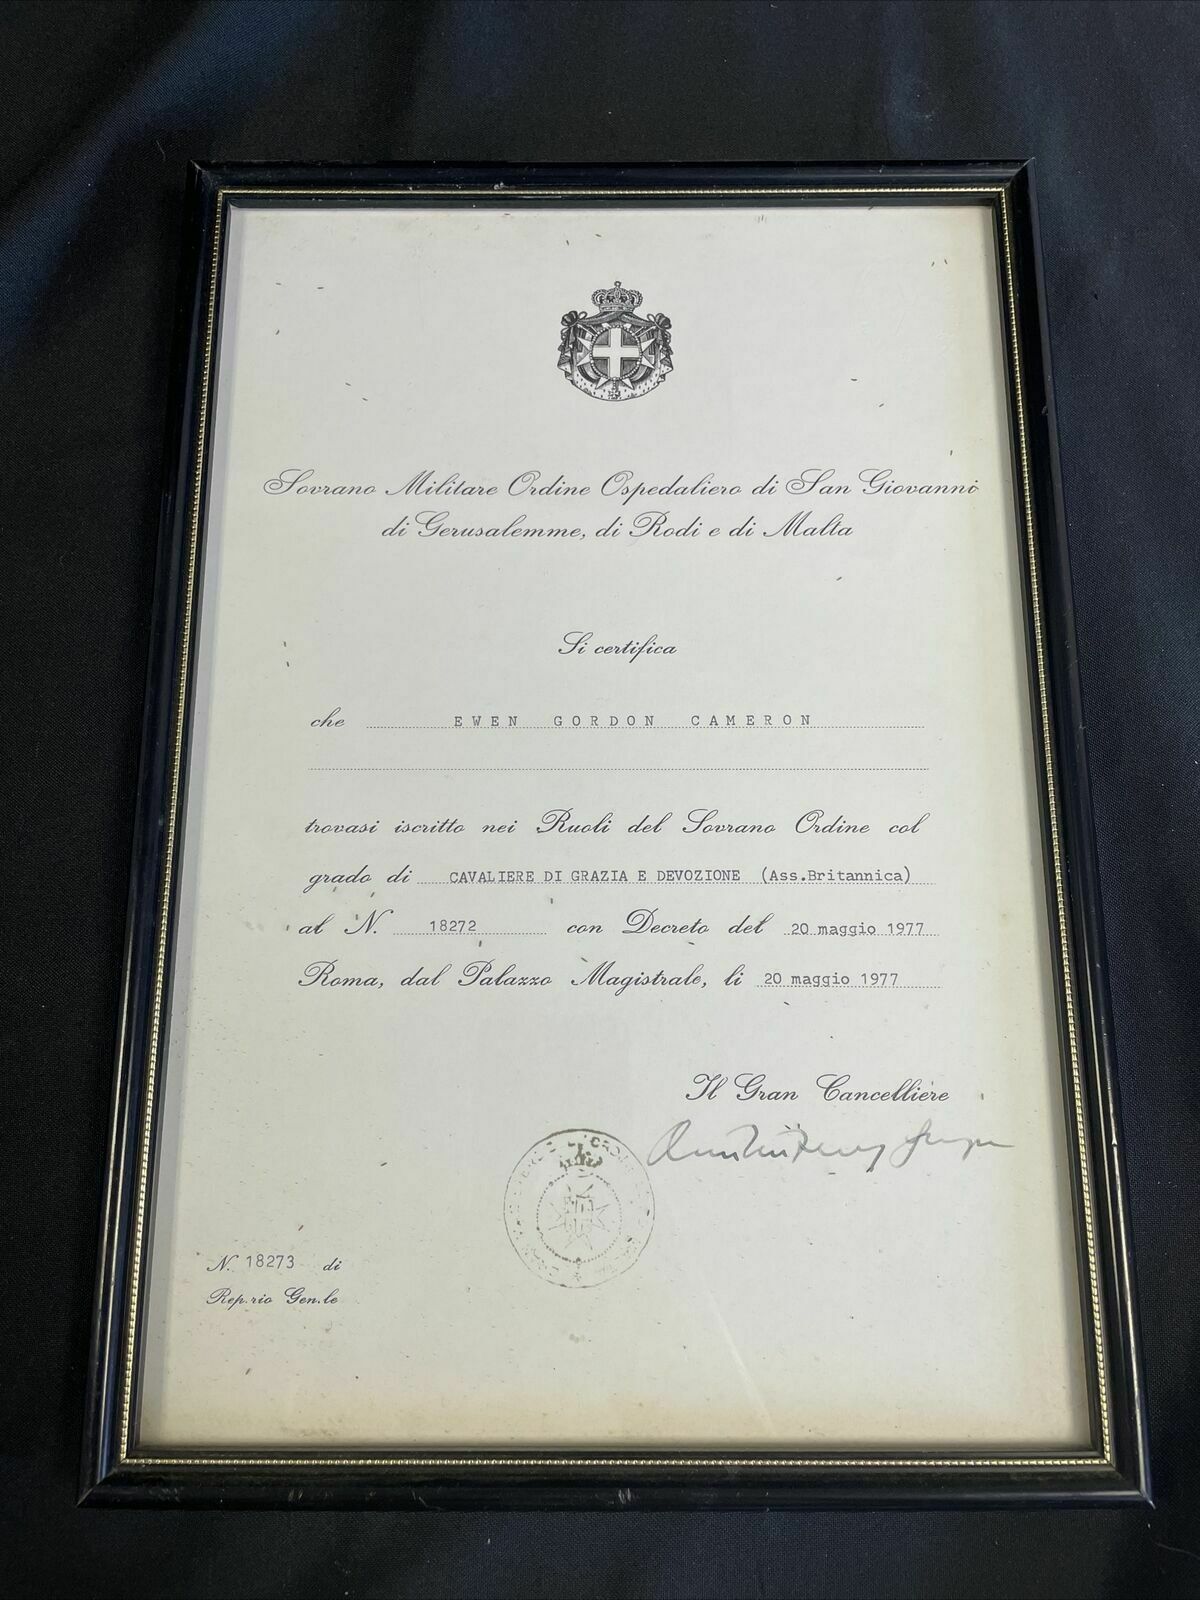 Sovrano Militare Ordine Ospedaliero di San Giovanni
di Gerusalemme, di Rodi e di Malta
Si certifica
che EWEN GORDON CAMERON
trovasi iscritto nei Ruoli del Sovrano Ordine col
grado di CAVALIERE DI GRAZIA E DEVOZIONE (Ass.Britannica)
al N. 18272 con Decreto del 20 maggio 1977
Roma, dal Palazzo Magistrale, li 20 maggio 1977
Il Gran Cancelliere
N. 18273 di
Rep.rio Gen.le